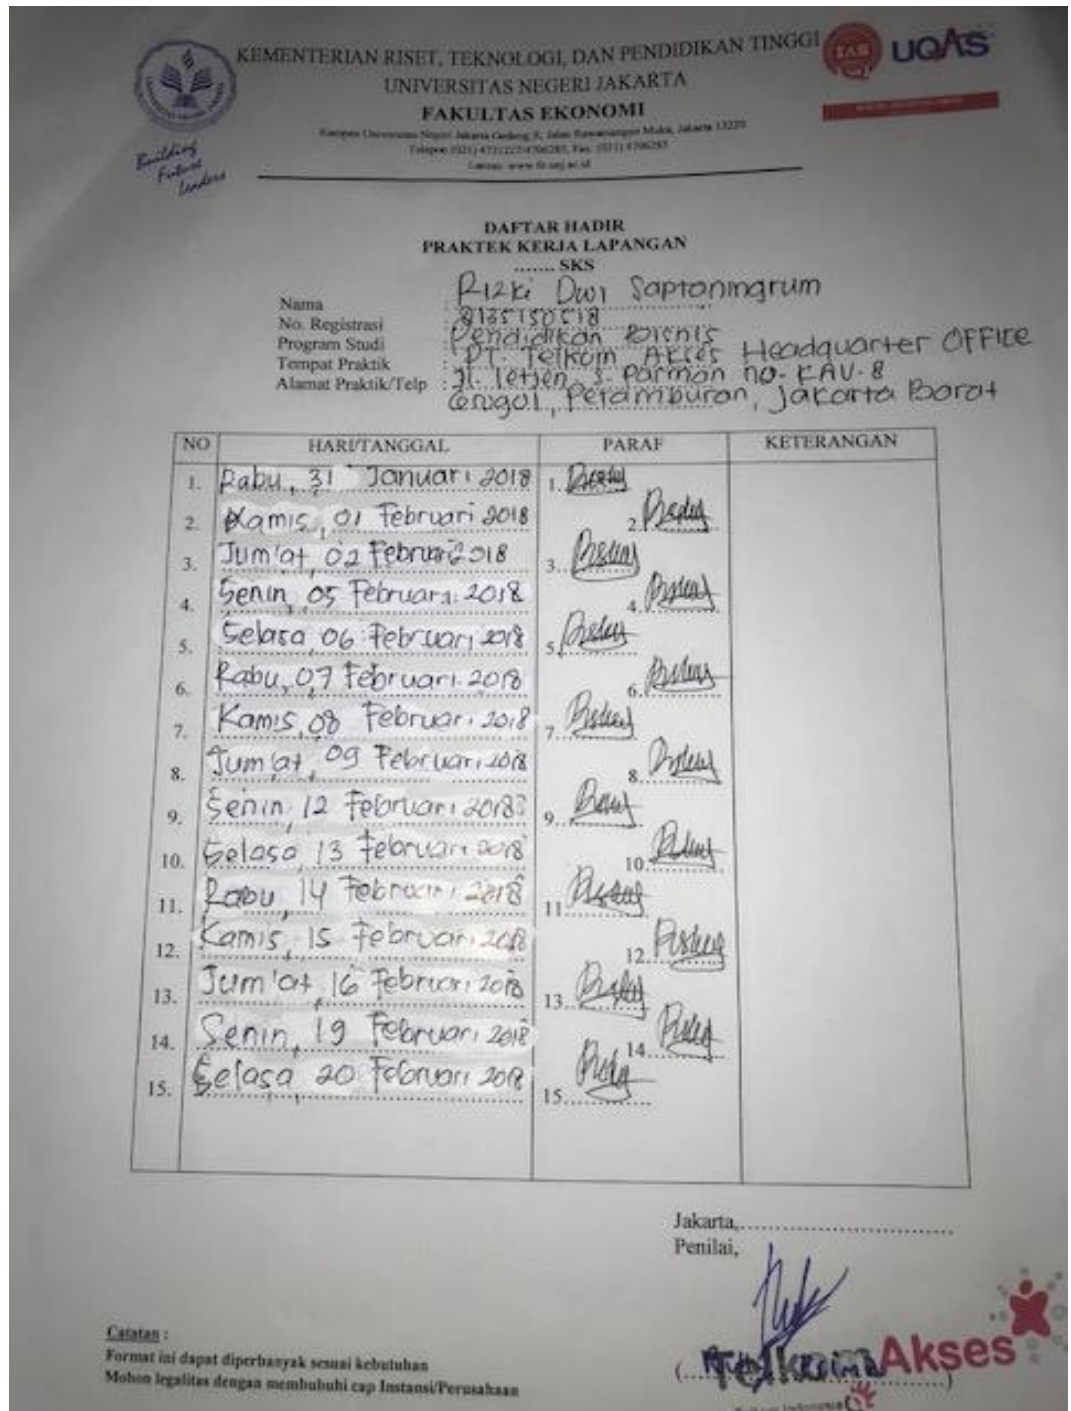 KEMENTERIAN RISET, TEKNOLOGI, DAN PENDIDIKAN TINGGI
UNIVERSITAS NEGERI JAKARTA
FAKULTAS EKONOMI
Kampus Universitas Negeri Jakarta Gedung R, Jalan Rawamangun Muka, Jakarta 13220
Telepon (021) 4721227/4706285, Fax. (021) 4706285
Laman: www.fe.unj.ac.id
UQAS
Building
Future
Leaders
DAFTAR HADIR
PRAKTEK KERJA LAPANGAN
....... SKS
Nama : Rizki Dwi Saptoningrum
No. Registrasi : 8135150518
Program Studi : Pendidikan Bisnis
Tempat Praktik : PT. Telkom Akses Headquarter OFFICE
Alamat Praktik/Telp : Jl. Letjen. S. Parman no. KAV-8
Petamburan, Jakarta Barat
NO HARI/TANGGAL PARAF KETERANGAN
1. Rabu, 31 Januari 2018 1.
2. Kamis, 01 Februari 2018 2.
3. Jum'at, 02 Februari 2018 3.
4. Senin, 05 Februari 2018 4.
5. Selasa 06 Februari 2018 5.
6. Rabu, 07 Februari 2018 6.
7. Kamis, 08 Februari 2018 7.
8. Jum'at, 09 Februari 2018 8.
9. Senin, 12 Februari 2018 9.
10. Selasa, 13 Februari 2018 10.
11. Rabu, 14 Februari 2018 11.
12. Kamis, 15 Februari 2018 12.
13. Jum'at, 16 Februari 2018 13.
14. Senin, 19 Februari 2018 14.
15. Selasa, 20 Februari 2018 15.
Jakarta,
Penilai,
Catatan :
Format ini dapat diperbanyak sesuai kebutuhan
Mohon legalitas dengan membubuhi cap Instansi/Perusahaan
TelkomAkses